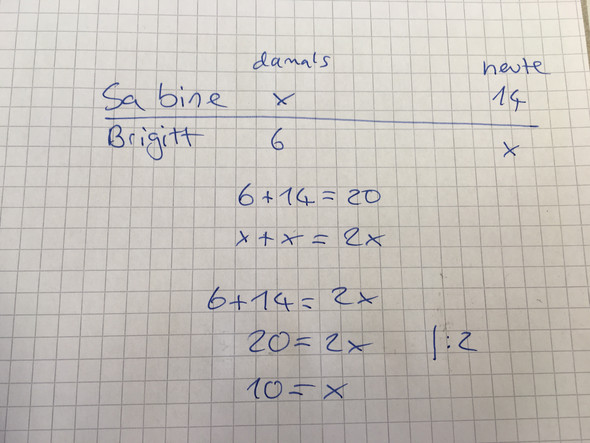 damals heute
Sabine x 14
Brigitt 6 x
6+14=20
x+x=2x
6+14=2x
20=2x |:2
10=x